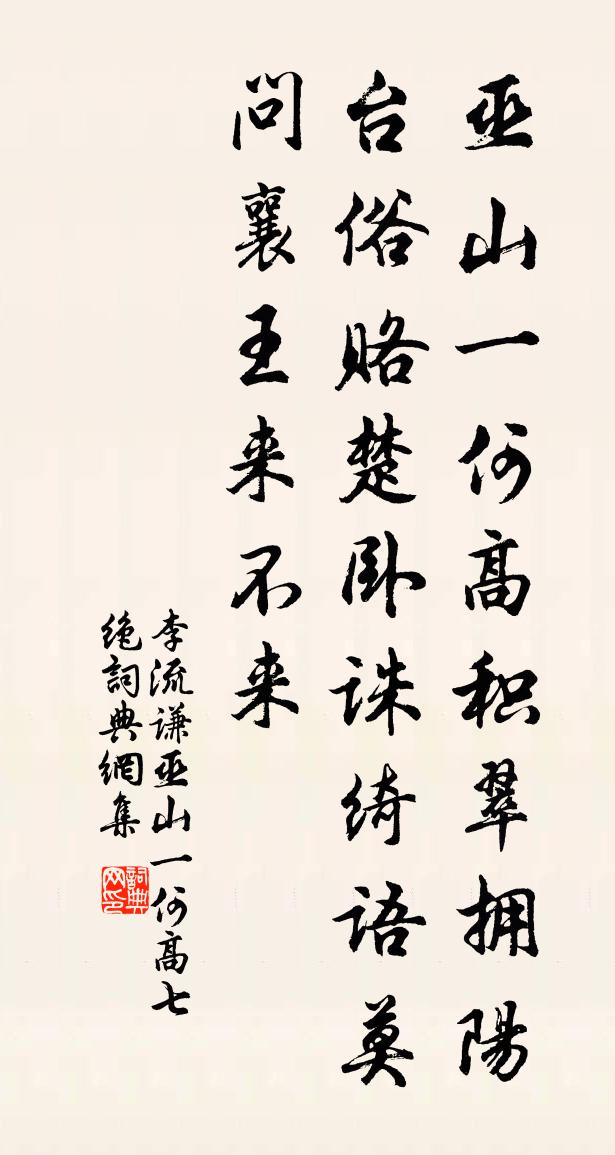 巫山一何高积翠拥陽
台俗賂楚卧誅绮语莫
问襄王来不来
李流谦巫山一何高七
绝詞典網集
詞典网印